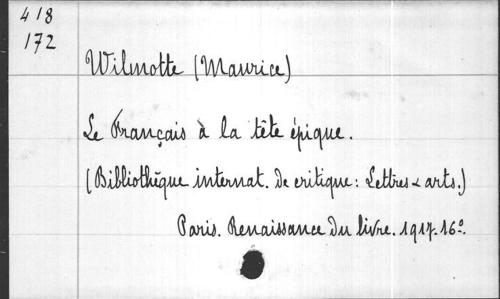 418
172
Wilmotte (Maurice)
Le Français à la tête épique.
(Bibliothèque internat. de critique: Lettres & arts.)
Paris. Renaissance du livre. 1917. 16º.